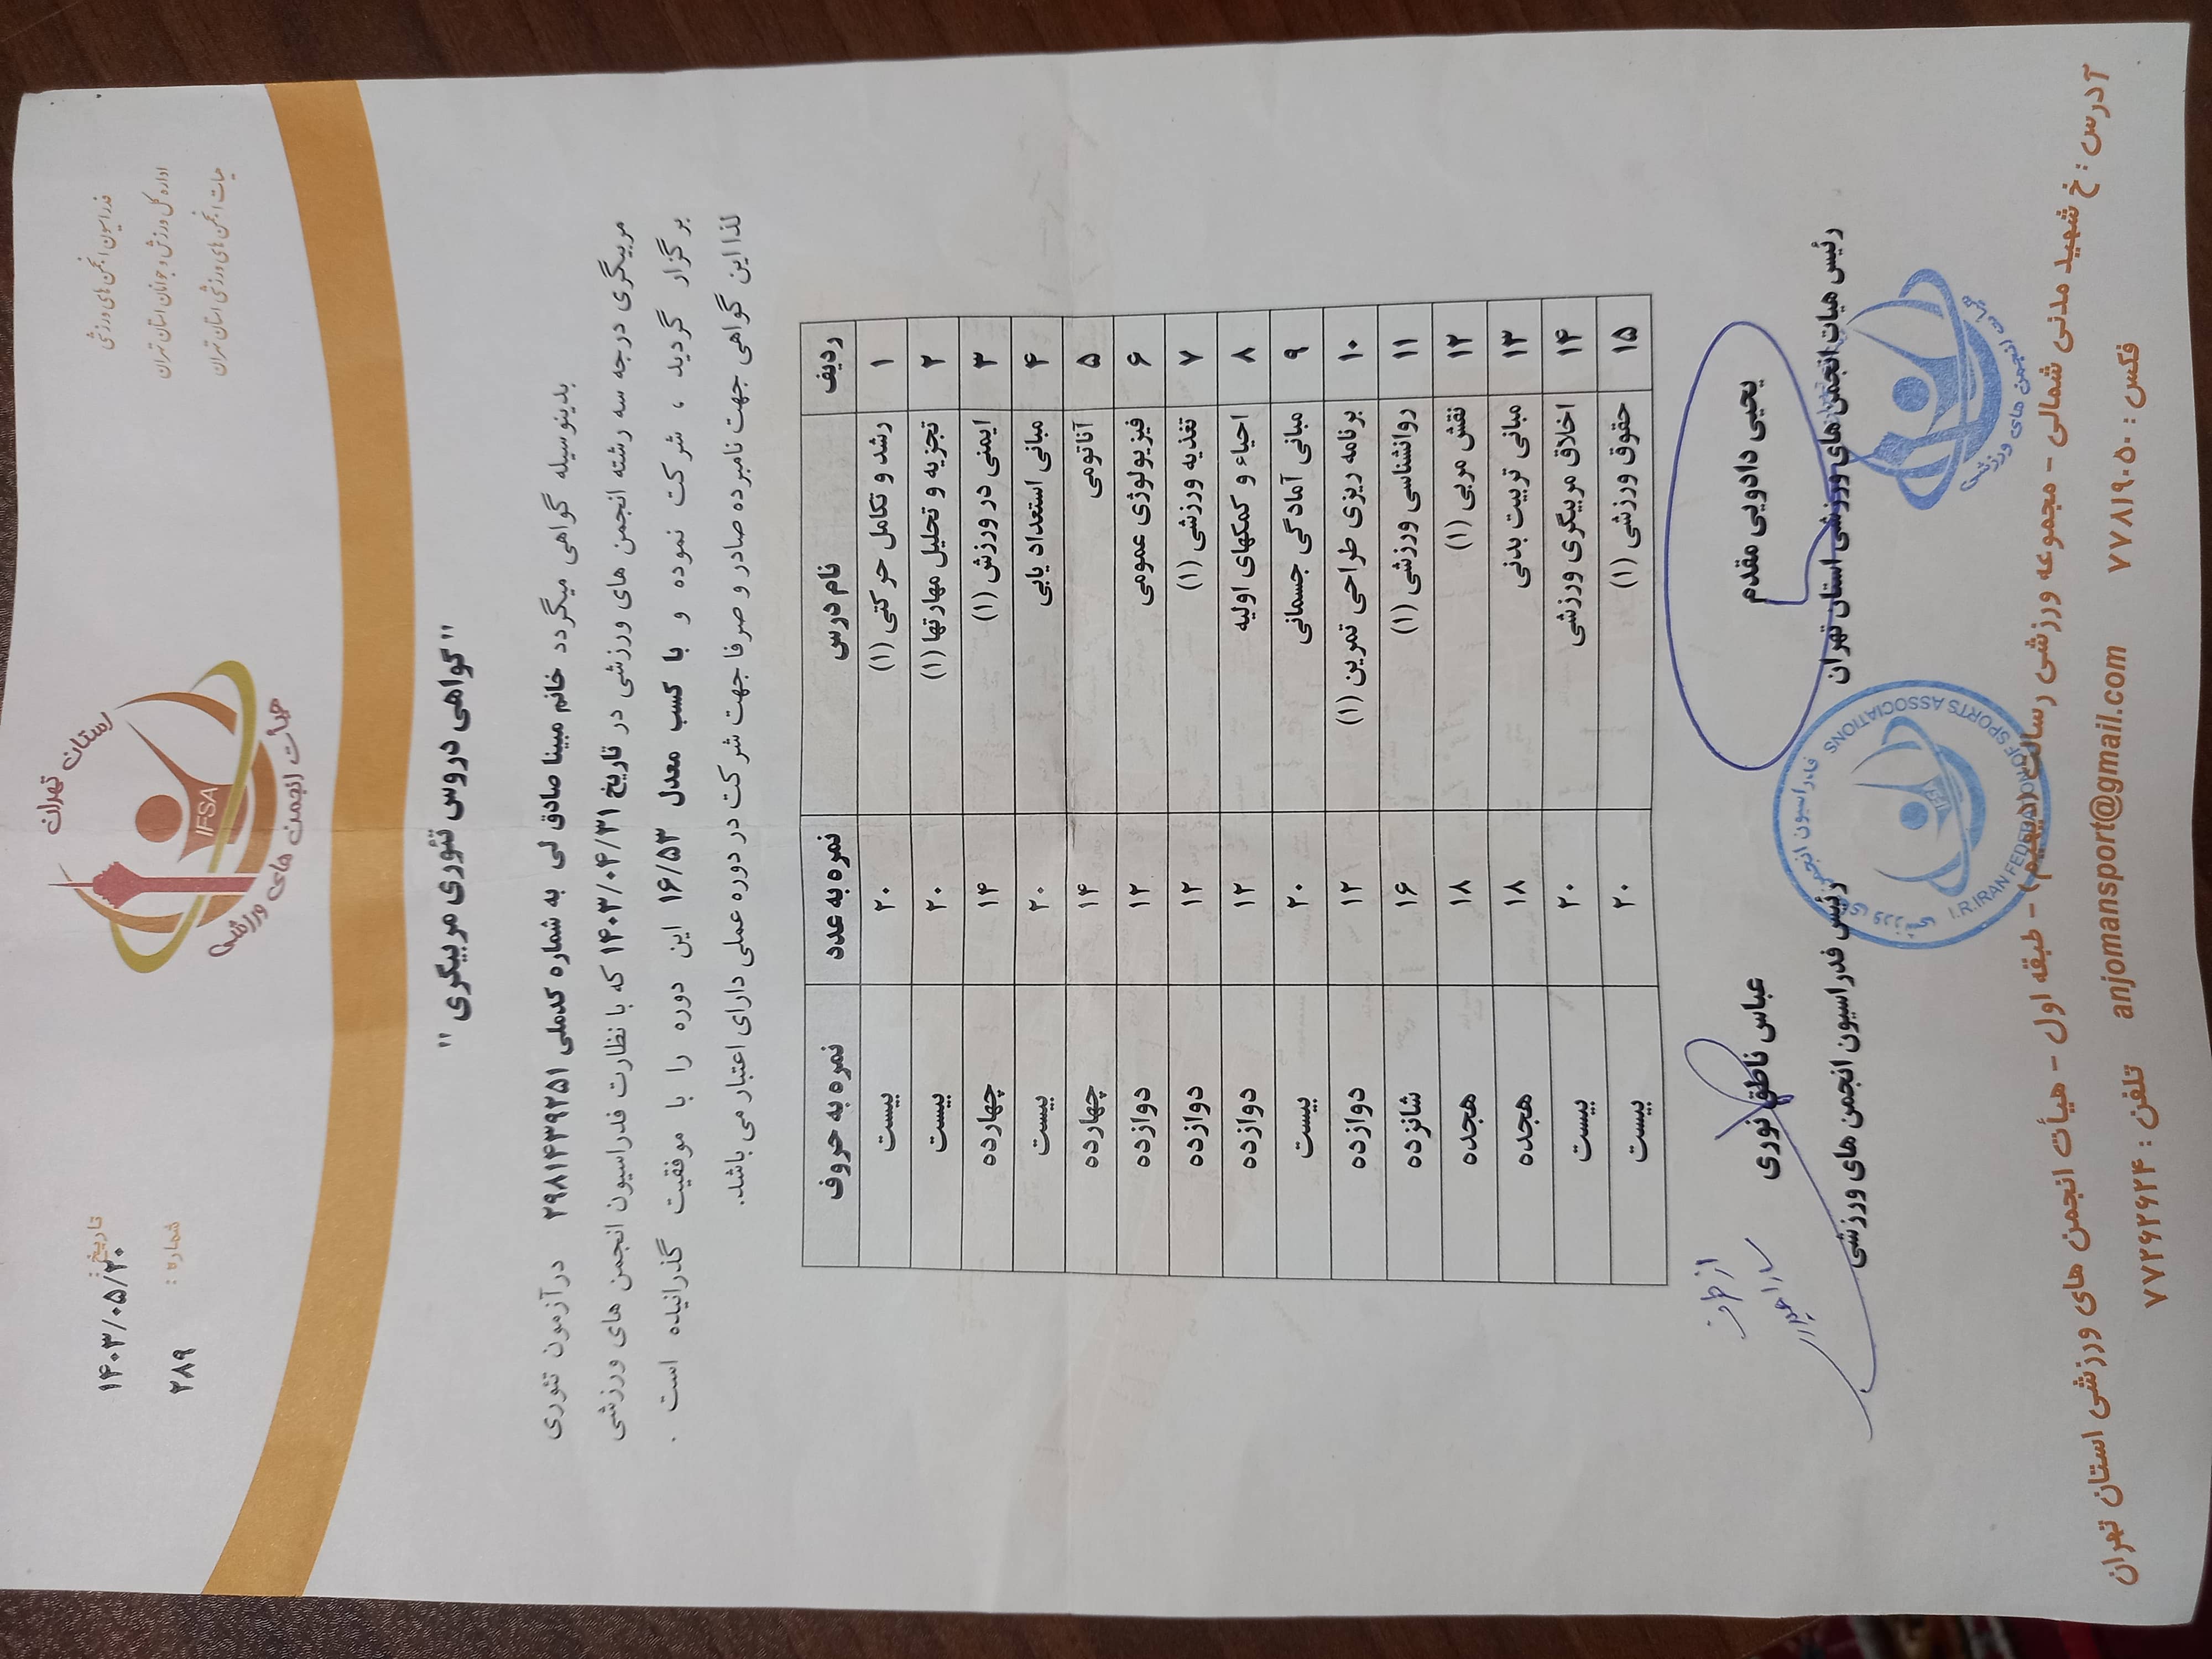 فدراسیون انجمن های ورزشی
اداره کل ورزش و جوانان استان تهران
هیات انجمن های ورزشی استان تهران
استان تهران
IFSA
هیات انجمن های ورزشی
تاریخ: ۱۴۰۳/۰۵/۲۰
شماره: ۲۸۹
"گواهی دروس تئوری مربیگری"
بدینوسیله گواهی میگردد خانم مبینا صادق لی به شماره کدملی ۲۹۸۱۴۳۹۲۵۱ درآزمون تئوری
مربیگری درجه سه رشته انجمن های ورزشی در تاریخ ۱۴۰۳/۰۴/۳۱ که با نظارت فدراسیون انجمن های ورزشی
بر گزار گردید ، شرکت نموده و با کسب معدل ۱۶/۵۳ این دوره را با موفقیت گذرانیده است .
لذا این گواهی جهت نامبرده صادر و صرفا جهت شرکت در دوره عملی دارای اعتبار می باشد.
ردیف نام درس نمره به عدد نمره به حروف
۱ رشد و تکامل حرکتی (۱) ۲۰ بیست
۲ تجزیه و تحلیل مهارتها (۱) ۲۰ بیست
۳ ایمنی در ورزش (۱) ۱۴ چهارده
۴ مبانی استعداد یابی ۲۰ بیست
۵ آناتومی ۱۴ چهارده
۶ فیزیولوژی عمومی ۱۲ دوازده
۷ تغذیه ورزشی (۱) ۱۲ دوازده
۸ احیاء و کمکهای اولیه ۱۲ دوازده
۹ مبانی آمادگی جسمانی ۲۰ بیست
۱۰ برنامه ریزی طراحی تمرین (۱) ۱۲ دوازده
۱۱ روانشناسی ورزشی (۱) ۱۶ شانزده
۱۲ نقش مربی (۱) ۱۸ هجده
۱۳ مبانی تربیت بدنی ۱۸ هجده
۱۴ اخلاق مربیگری ورزشی ۲۰ بیست
۱۵ حقوق ورزشی (۱) ۲۰ بیست
یحیی دادویی مقدم
رئیس هیات انجمن های ورزشی استان تهران
هیات انجمن های ورزشی
عباس ناطق نوری
رئیس فدراسیون انجمن های ورزشی
از طرف
فدراسیون انجمن های ورزشی
I.R.IRAN FEDERATION OF SPORTS ASSOCIATIONS
IFSA
آدرس : خ شهید مدنی شمالی - مجموعه ورزشی رسالت (دیهیم) - طبقه اول - هیأت انجمن های ورزشی استان تهران
فکس : ۷۷۸۱۹۰۵۰ anjomansport@gmail.com تلفن : ۷۷۲۶۲۶۲۴